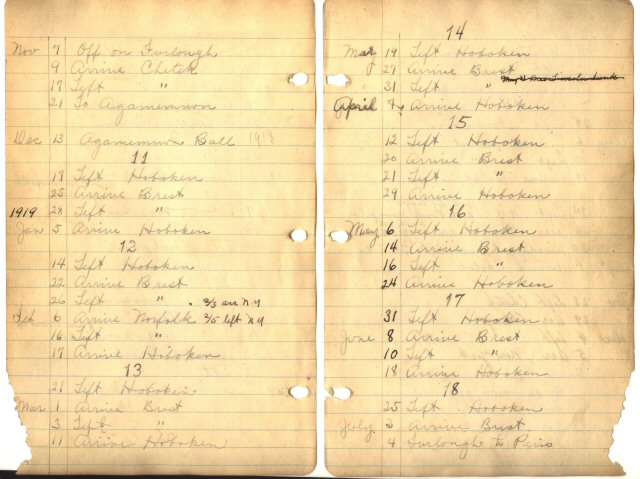 Nov 7 Off on Furlough
9 Arrive Chetek
17 Left "
21 To Agamemnon
Dec 13 Agamemnon Ball 1918
11
17 Left Hoboken
25 Arrive Brest
1919 28 Left "
Jan 5 Arrive Hoboken
12
14 Left Hoboken
22 Arrive Brest
26 Left " 2/3 arr N Y
Feb 6 Arrive Norfolk 2/5 left N Y
16 Left "
17 Arrive Hoboken
13
21 Left Hoboken
Mar 1 Arrive Brest
3 Left "
11 Arrive Hoboken
14
Mar 19 Left Hoboken
27 Arrive Brest
31 Left "
April 7 Arrive Hoboken
15
12 Left Hoboken
20 Arrive Brest
21 Left "
29 Arrive Hoboken
16
May 6 Left Hoboken
14 Arrive Brest
16 Left "
24 Arrive Hoboken
17
31 Left Hoboken
June 8 Arrive Brest
10 Left "
18 Arrive Hoboken
18
25 Left Hoboken
July 2 Arrive Brest
4 Furlough to Paris